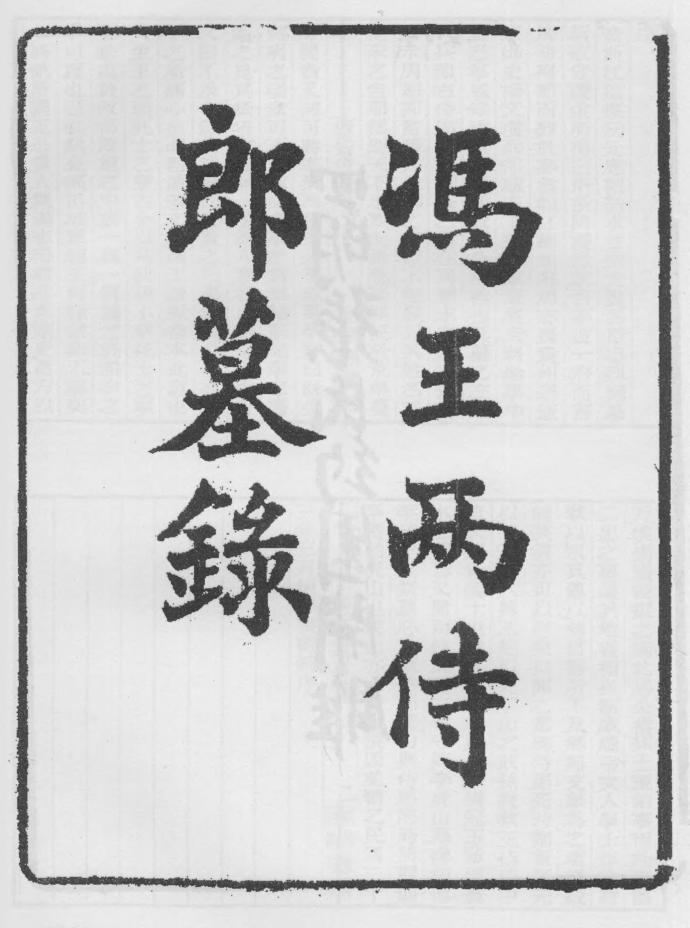 馮王两侍
郎墓錄